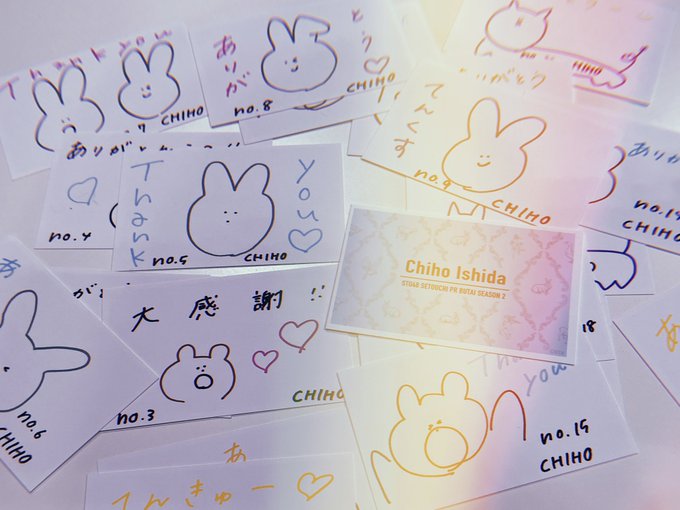 Thank you
CHIHO
ありがとう
no.8
CHIHO
no.
HIHO
りがとう
てんくす
no.9
CHIHO
ありが
no.19
CHIHO
ありがとう
no.4
Thank
you
no.5
CHIHO
Chiho Ishida
STU48 SETOUCHI PR BUTAI SEASON 2
あ
no.6
CHIHO
大感謝!!
no.3
CHIHO
18
you
no.15
CHIHO
あ
てんきゅー